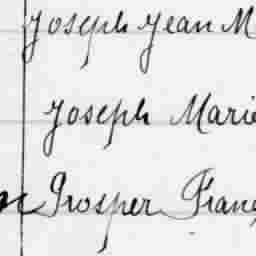 Joseph Jean M
Joseph Marie
Prosper Franç